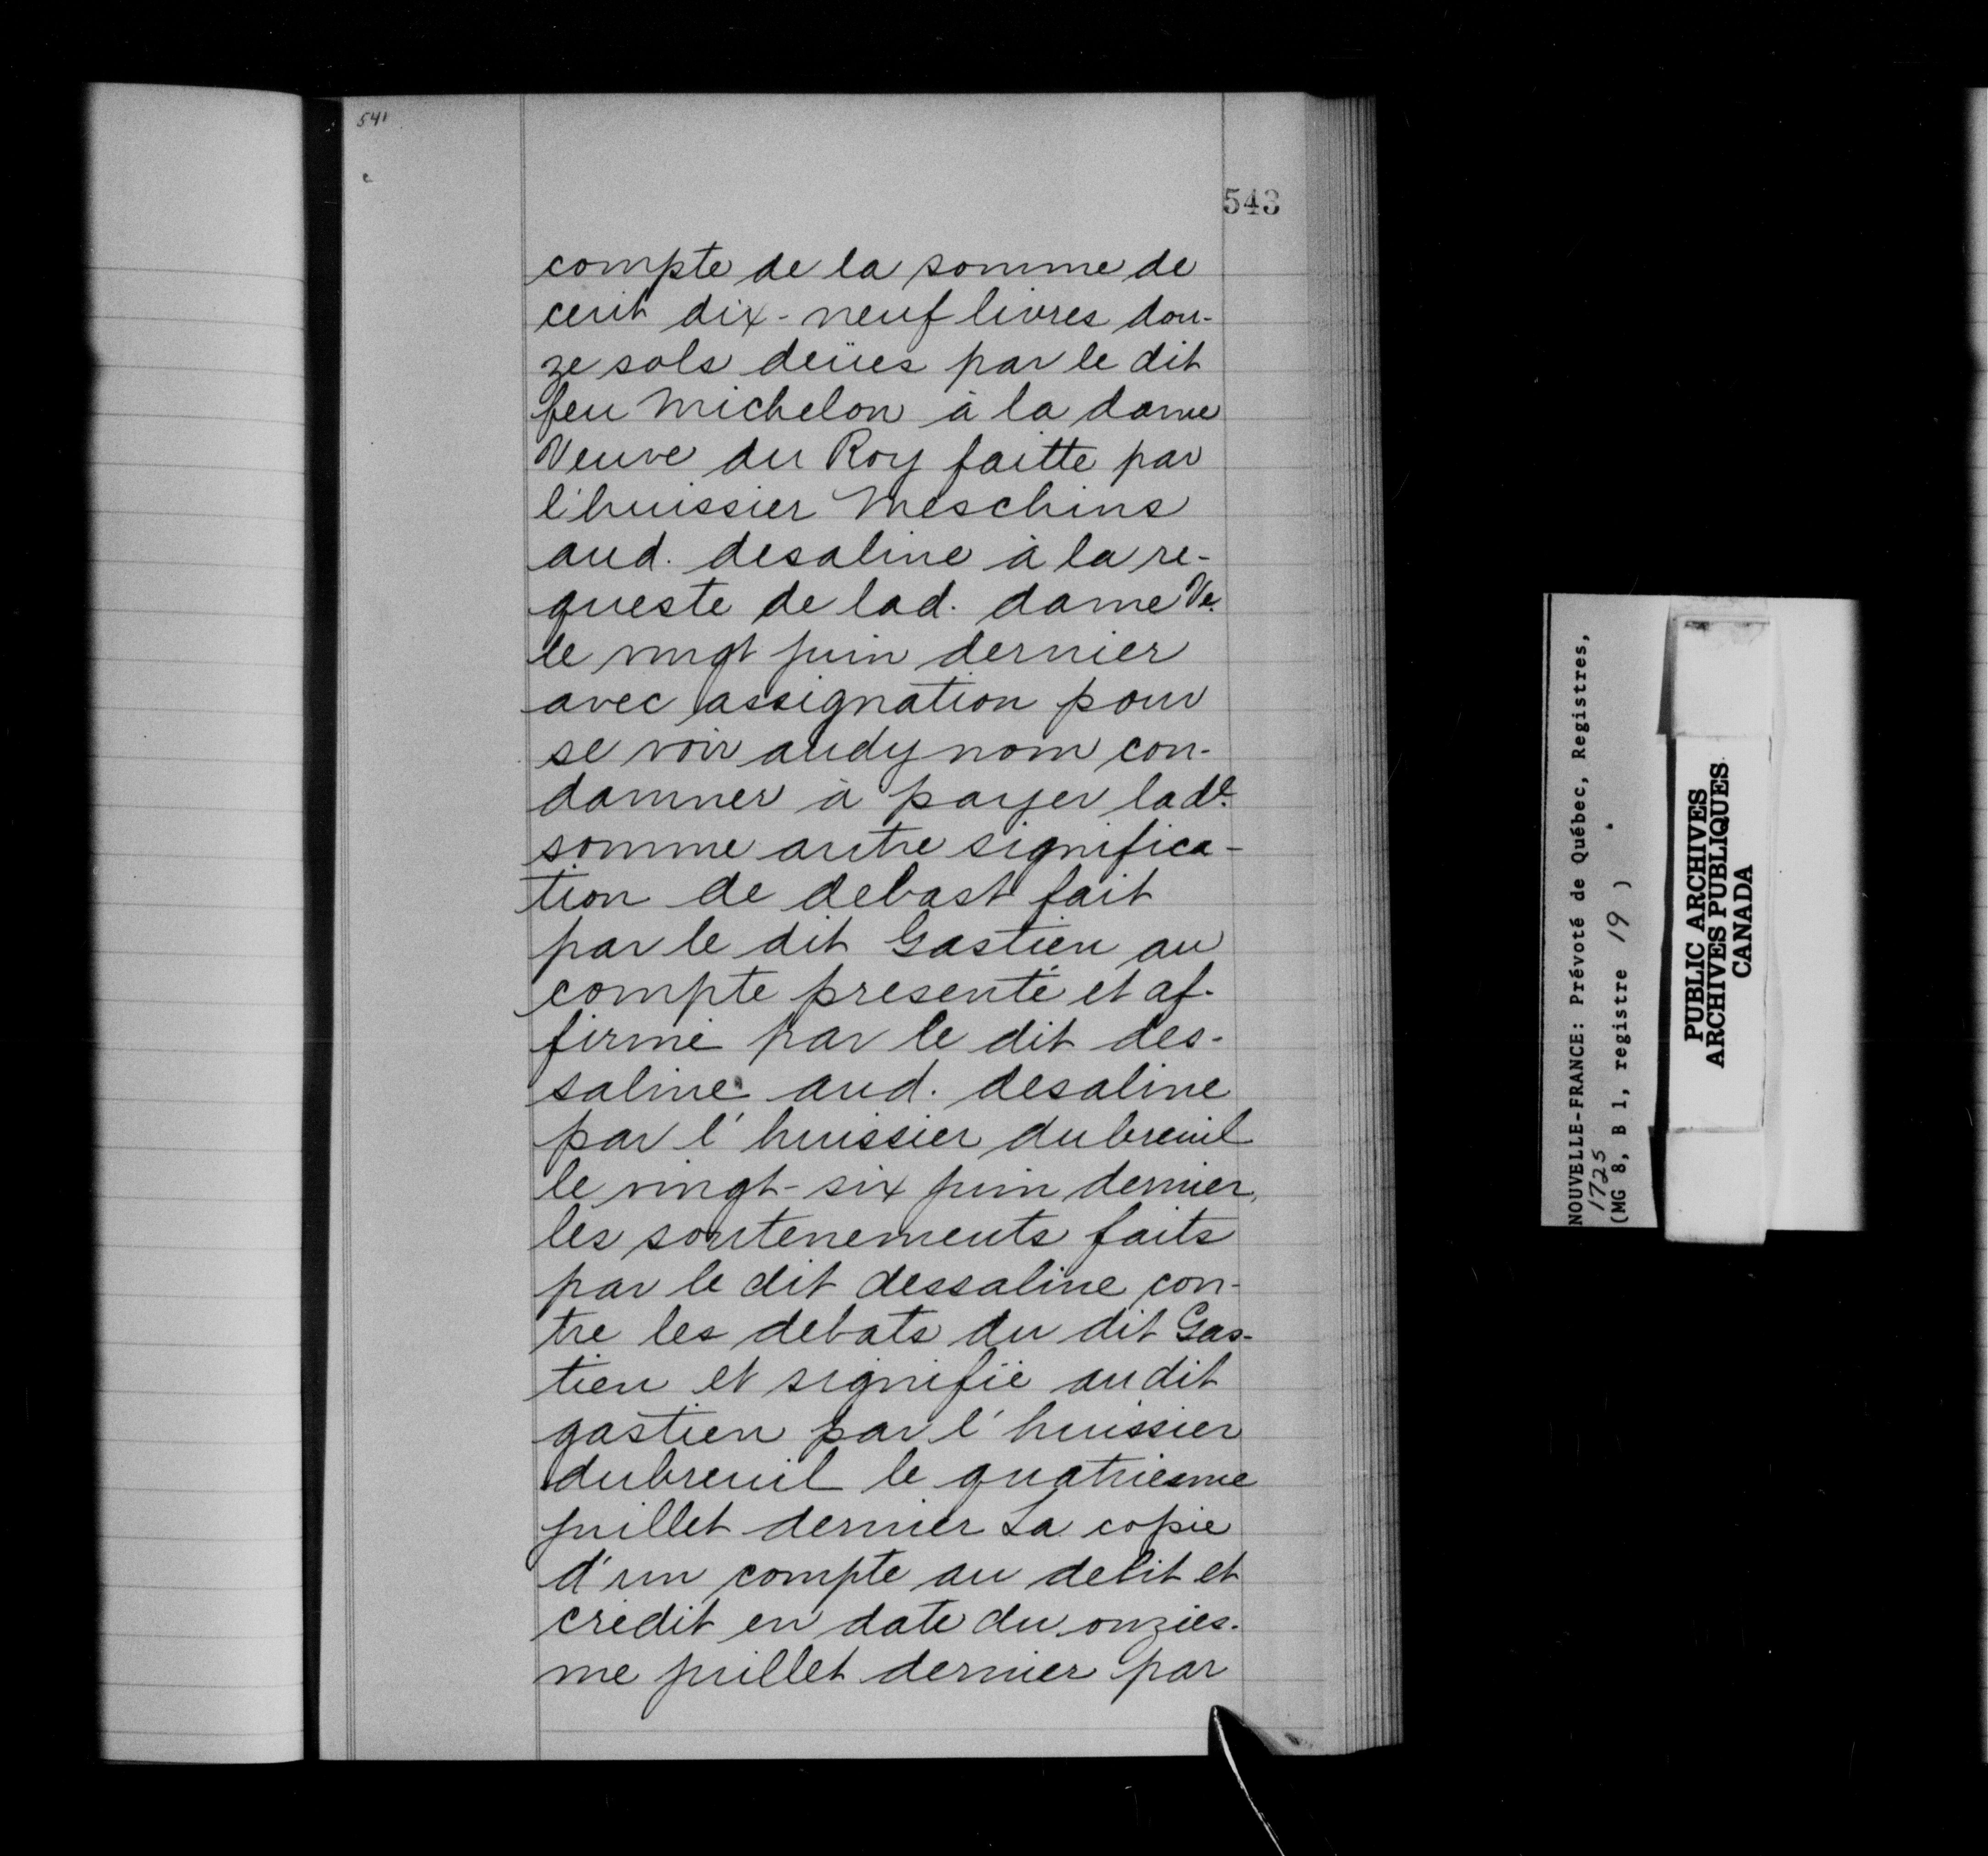 541
543
compte de la somme de
cent dix-neuf livres dou-
ze sols deües par le dit
feu Michelon à la dame
Veuve du Roy faitte par
l'huissier Meschins
aud. desaline à la re-
queste de lad. dame Ve.
le vingt juin dernier
avec assignation pour
se voir audy nom con-
damner à payer lade.
somme autre significa-
tion de debast fait
par le dit Gastien au
compte presenté et af-
firmé par le dit des-
saline aud. desaline
par l'huissier dubreuil
le vingt-six juin dernier,
les soutenements faits
par le dit dessaline con-
tre les debats du dit Gas-
tien et signifié audit
gastien par l'huissier
dubreuil le quatriesme
juillet dernier La copie
d'un compte au debit et
credit en date du onzies-
me juillet dernier par
NOUVELLE-FRANCE: Prévoté de Québec, Registres,
1725
(MG 8, B 1, registre 19 )
PUBLIC ARCHIVES
ARCHIVES PUBLIQUES
CANADA